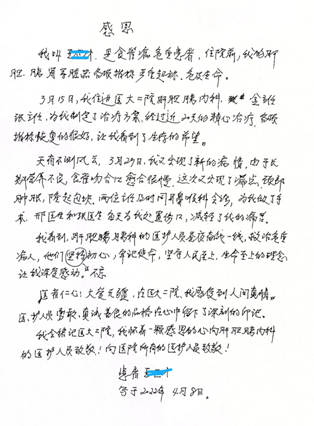 感恩
我叫 是食管癌危重患者,住院前,我的肝
胆、肠胃等脏器各项指标严重超标,危及生命。
3月15日,我住进医大二院肝胆胰内科, 金主任
张主任,为我制定了治疗方案,经过近 天的精心治疗,各项
指标恢复的很好,让我看到了生存的希望。
天有不测风云,3月29日,我又出现了新的病情,由于长
期营养不良,食管吻合口愈合很慢,这次又出现了漏出,颈部
肿胀,隆起包块,两位主任及时同 科会诊,为我做了手
术,邢医生和 医生每天为我处置伤口,减轻了我的痛苦。
我看到,肝胆胰内科的医护人员是 一线,救治危重
病人,他们坚持初心,牢记使命,坚守人民至上、生命至上的理念,
让我深受感动。
医者仁心!大爱无疆,在医大二院,我感受到人间真情。
医护人员勤恳、真诚、善良的品格在心中留下了深刻的印记。
我会铭记医大二院,我怀着一颗感恩的心向肝胆胰内科
的医护人员致敬!向医院所有的医护人员致敬!
患者
写于2022年4月8日。